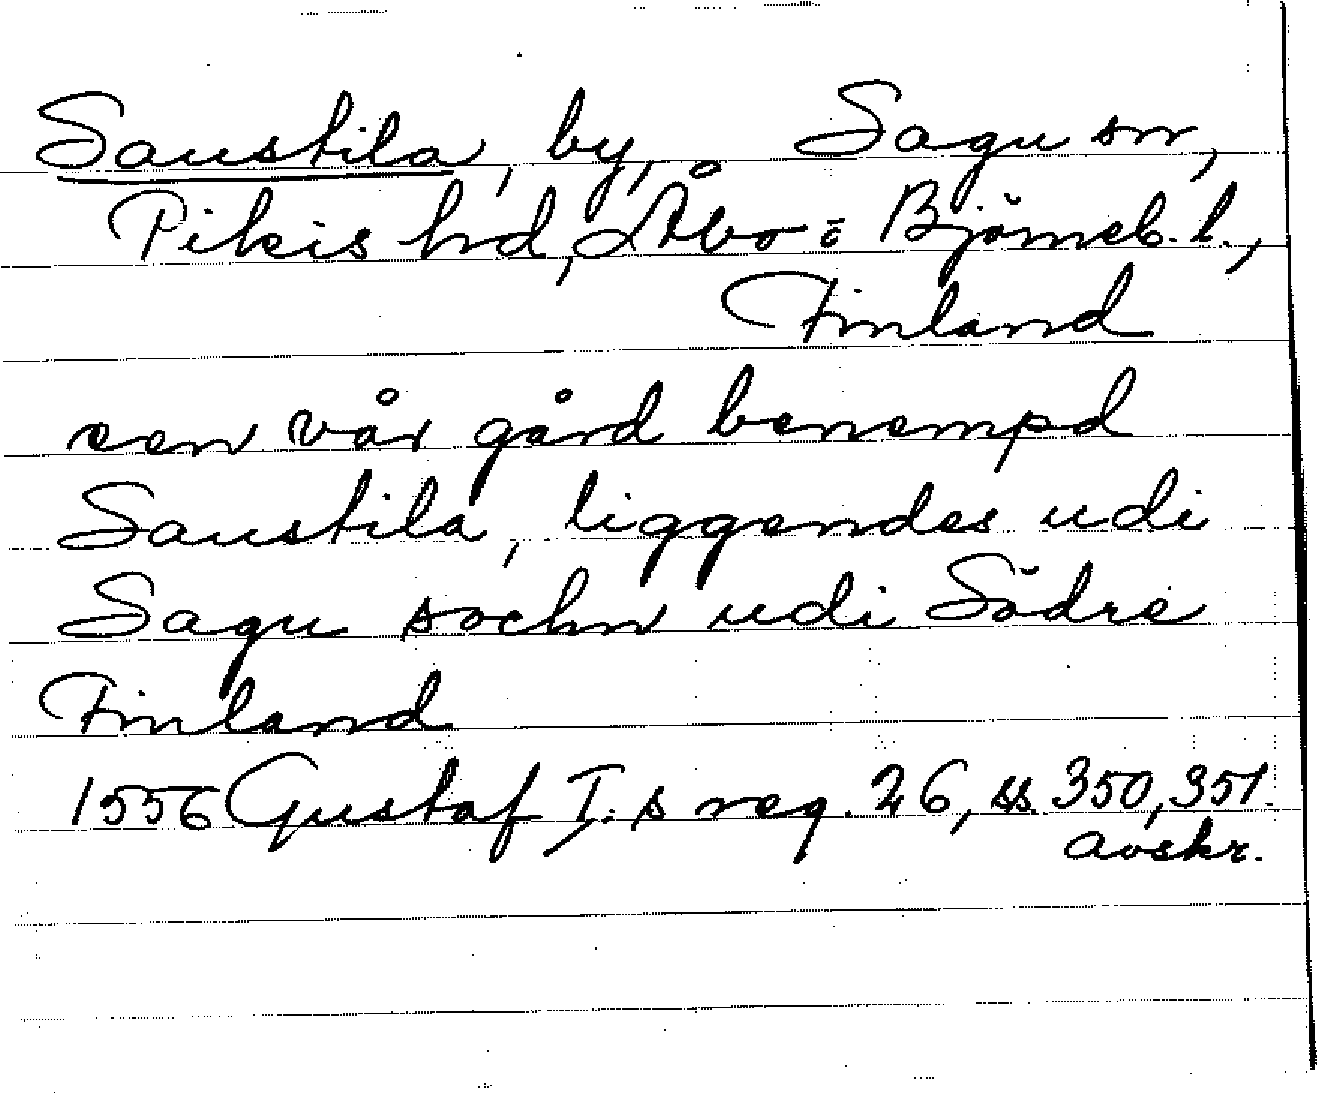 Saustila, by, Sagu sn,
Pikis hrd, Åbo o Björneb. l.,
Finland
een vår gård benempd
Saustila, liggendes udi
Sagu sochn udi Södre
Finland
1556 Gustaf I:s reg. 26, ss. 350, 351.
avskr.